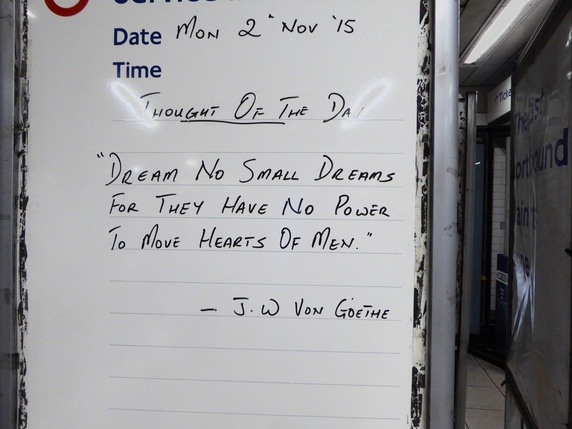 Date Mon 2nd Nov '15
Time
Thought Of The Day
"Dream No Small Dreams
For They Have No Power
To Move Hearts Of Men."
— J.W Von Goethe